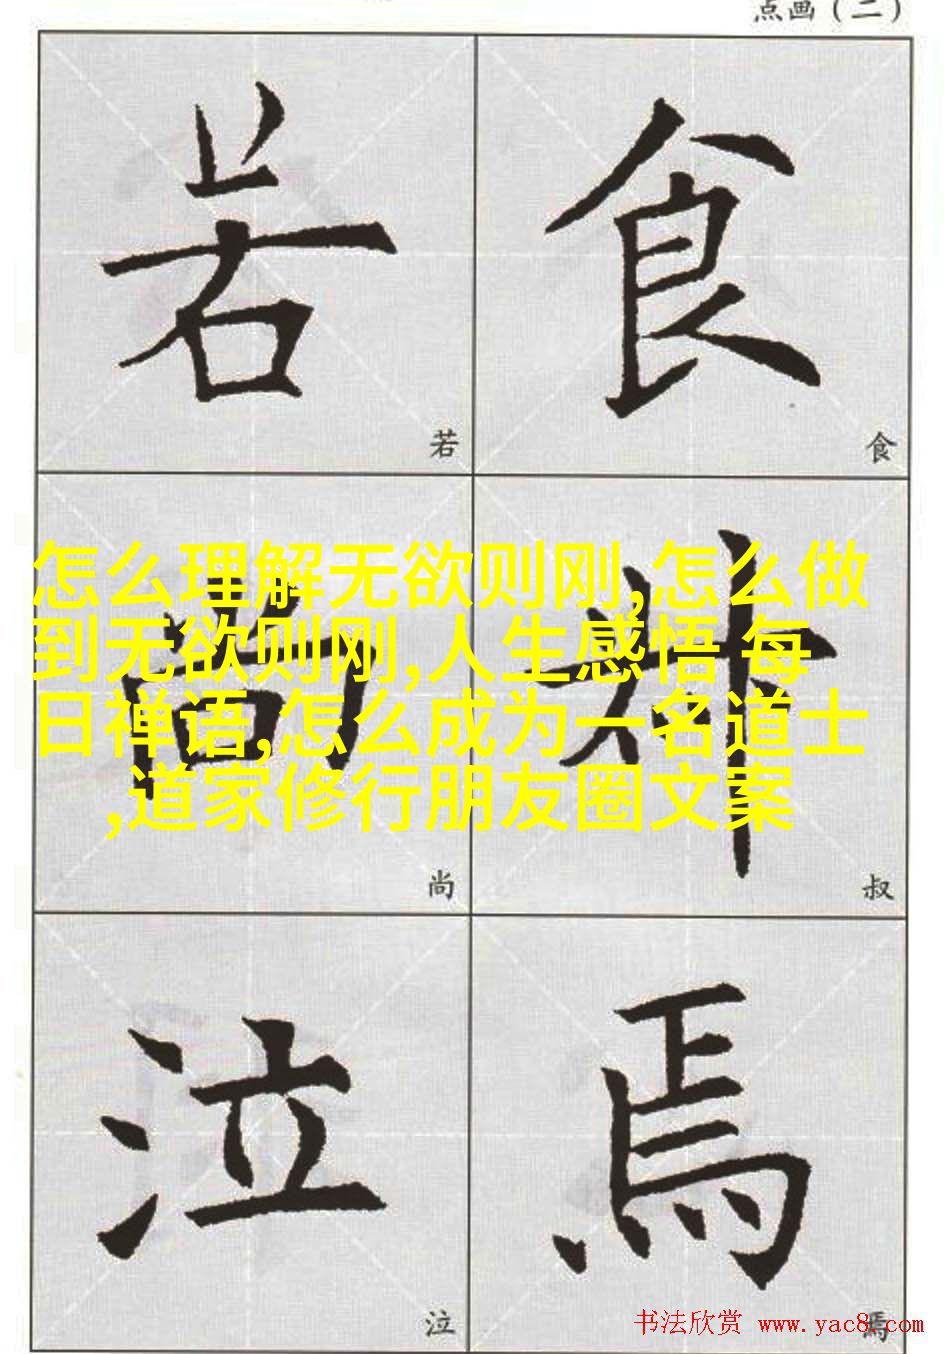 点画（二）
若 食
若 食
怎么理解无欲则刚,怎么做
到无欲则刚,人生感悟 每
日禅语,怎么成为一名道士
,道家修行朋友圈文案
尚 叔
尚 叔
泣 焉
泣 焉
书法欣赏 www.yac8.com